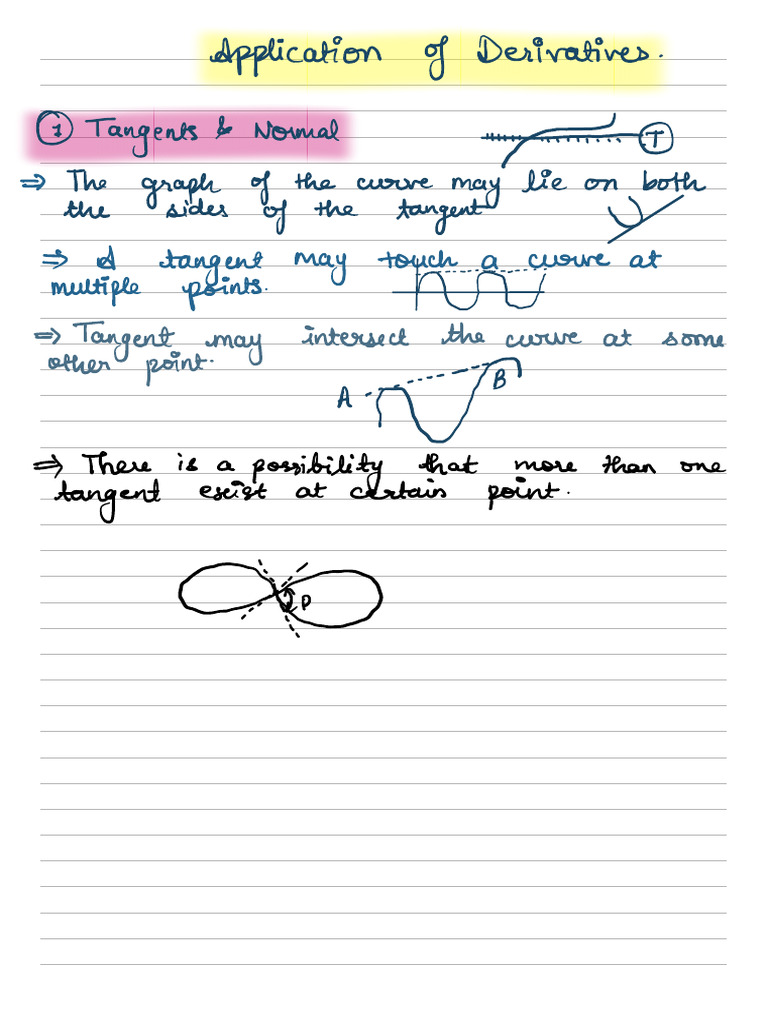 Application of Derivatives.
1 Tangents & Normal
T
⇒ The graph of the curve may lie on both
the sides of the tangent
⇒ A tangent may touch a curve at
multiple points.
⇒ Tangent may intersect the curve at some
other point.
A
B
⇒ There is a possibility that more than one
tangent exist at certain point.
P